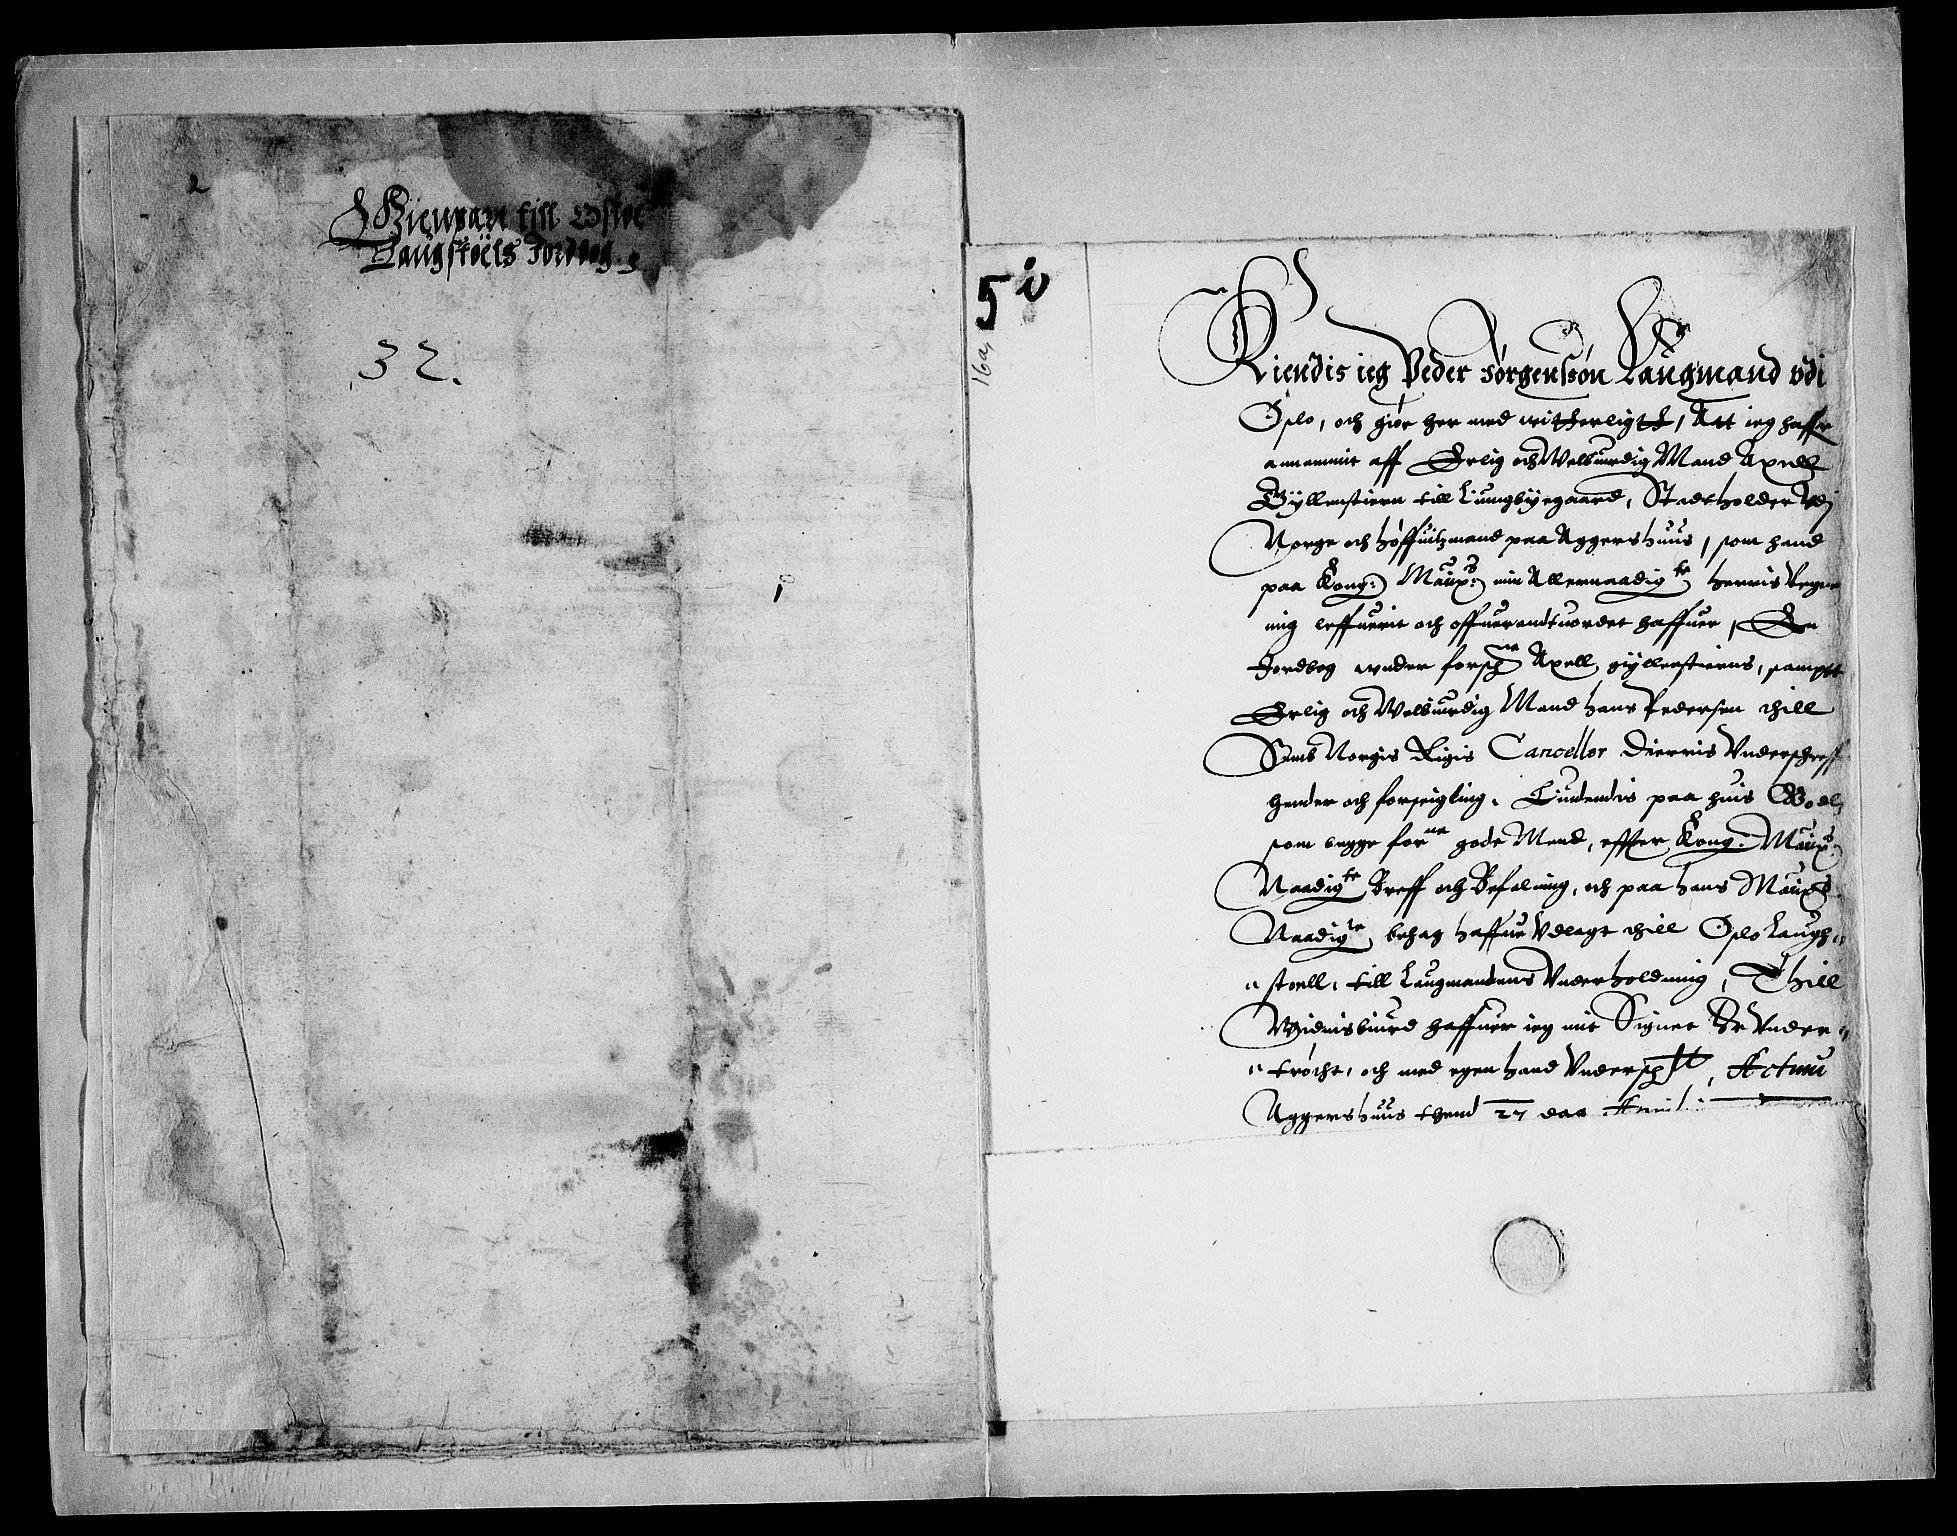 2
Gienpart till Osloe
Laugstoels Jordbog.
32.
5 i
16a,
Kiendis ieg Peder Jørgenssøn Laugmand vdi
Oslo, och giør her med witterligtt, Att ieg haffr
annammit aff Erlig och Welbiurdig Mand Axell
Gyllenstiern till Liungbyegaard, Stadtholder Vdj
Norge och høffuitzmand paa Aggershuus, som hand
paa Kong: Maiyts: min Allernaadigste herris Vegne
mig leffuerit och offuerandtuordet haffuer, En
Jordbog wnder forschne Axell gyllenstierns, sampt
Erlig och Welbiurdig Mand hans Pedersen thill
Semb Norgis Rigis Cancellor Dierris Vnderschreff
hender och forseigling. Liudendis paa huis Godz,
som begge forne gode Mend, effter Kong: Maiyts
Naadigste Breff och Befalning, och paa hans Maiyts
Naadigste behag haffue Vdlagt thill Oslo Laugh⸗
⸗stoell, till Laugmandens Vnderholdning, Thill
Widnisbiurd haffuer ieg mit Signet Her Vnder⸗
⸗trøcht, och med egen hand Vnderschtt, Actum
Aggershuus thend 27 daa Apriil